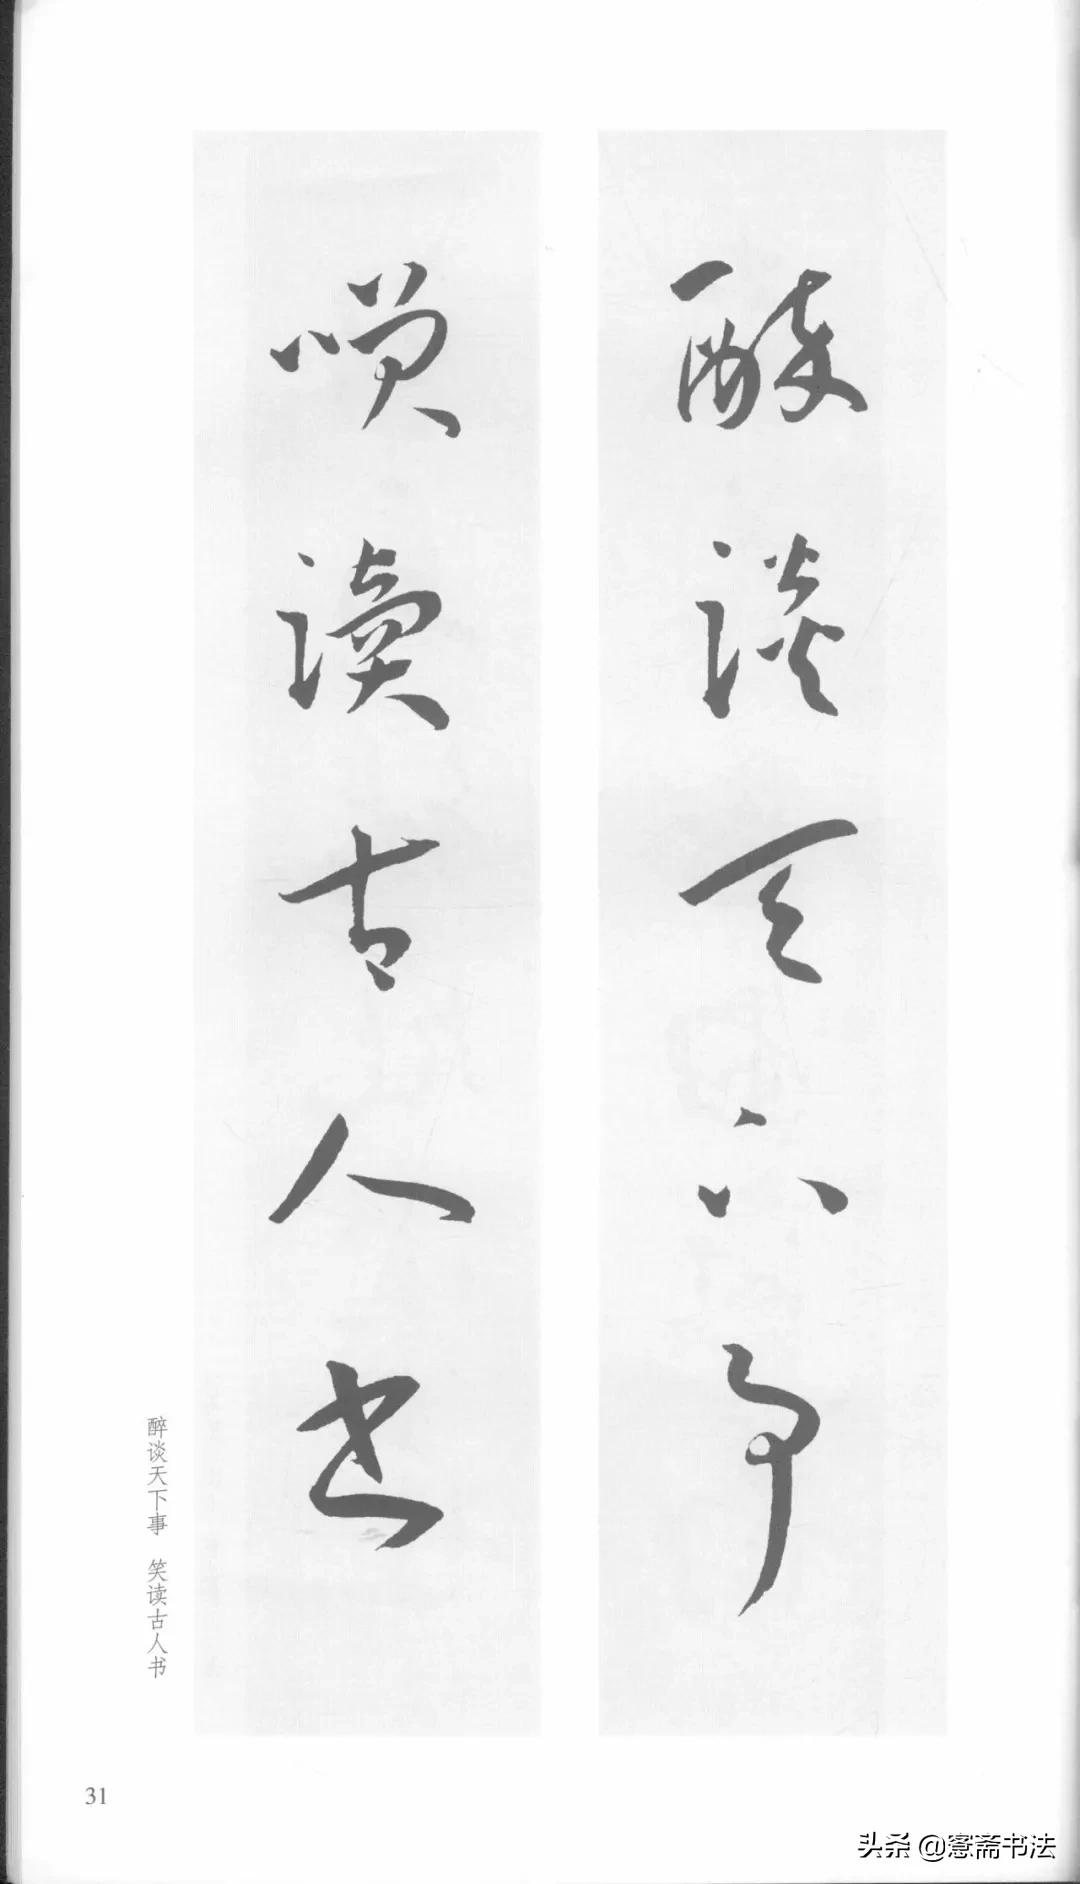 醉談天下事
咲讀古人书
醉谈天下事 笑读古人书
31
头条 @愙斋书法